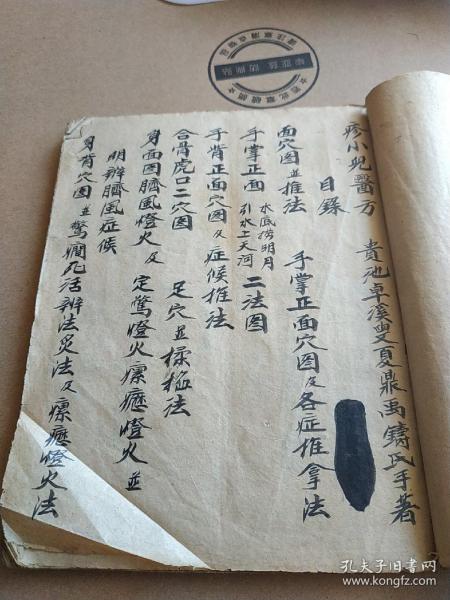 疹小児醫方 貴池卓溪叟夏鼎禹鑄氏手著
目錄
面穴图並推法 手掌正面穴图及各症推拿法
手掌正面 水底捞明月 引水上天河 二法图
手背正面穴图及症候推法
合骨虎口二穴图 足穴並揉掐法
身面图臍風燈火及定驚燈火瘰癧燈火並
明辨臍風症候
身背穴图並驚癇死活辨法灸法及瘰癧燈火法
孔夫子旧书网
www.kongfz.com